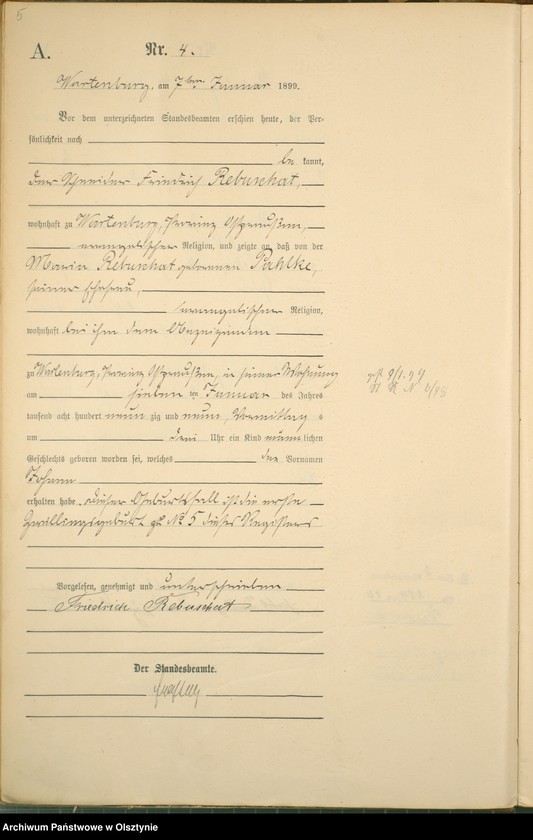 5
A. Nr. 4.
Wartenburg, am 7ten Januar 1899.
Vor dem unterzeichneten Standesbeamten erschien heute, der Per-
sönlichkeit nach
be kannt,
der Schneider Friedrich Rebuschat,
wohnhaft zu Wartenburg, Provinz Ostpreußen,
evangelischer Religion, und zeigte an, daß von der
Maria Rebuschat geborenen Pahlke,
seiner Ehefrau,
evangelischer Religion,
wohnhaft bei ihm dem Anzeigenden
zu Wartenburg, Provinz Ostpreußen, in seiner Wohnung
am sieben ten Januar des Jahres
tausend acht hundert neun zig und neun, Vormittag s
um drei Uhr ein Kind männ lichen
Geschlechts geboren worden sei, welches den Vornamen
Johann
erhalten habe. Dieser Geburtsfall ist die erste
Zwillingsgeburt zu No 5 dieses Registers
Vorgelesen, genehmigt und unterschrieben
Friedrich Rebuschat
Der Standesbeamte.
Archiwum Państwowe w Olsztynie